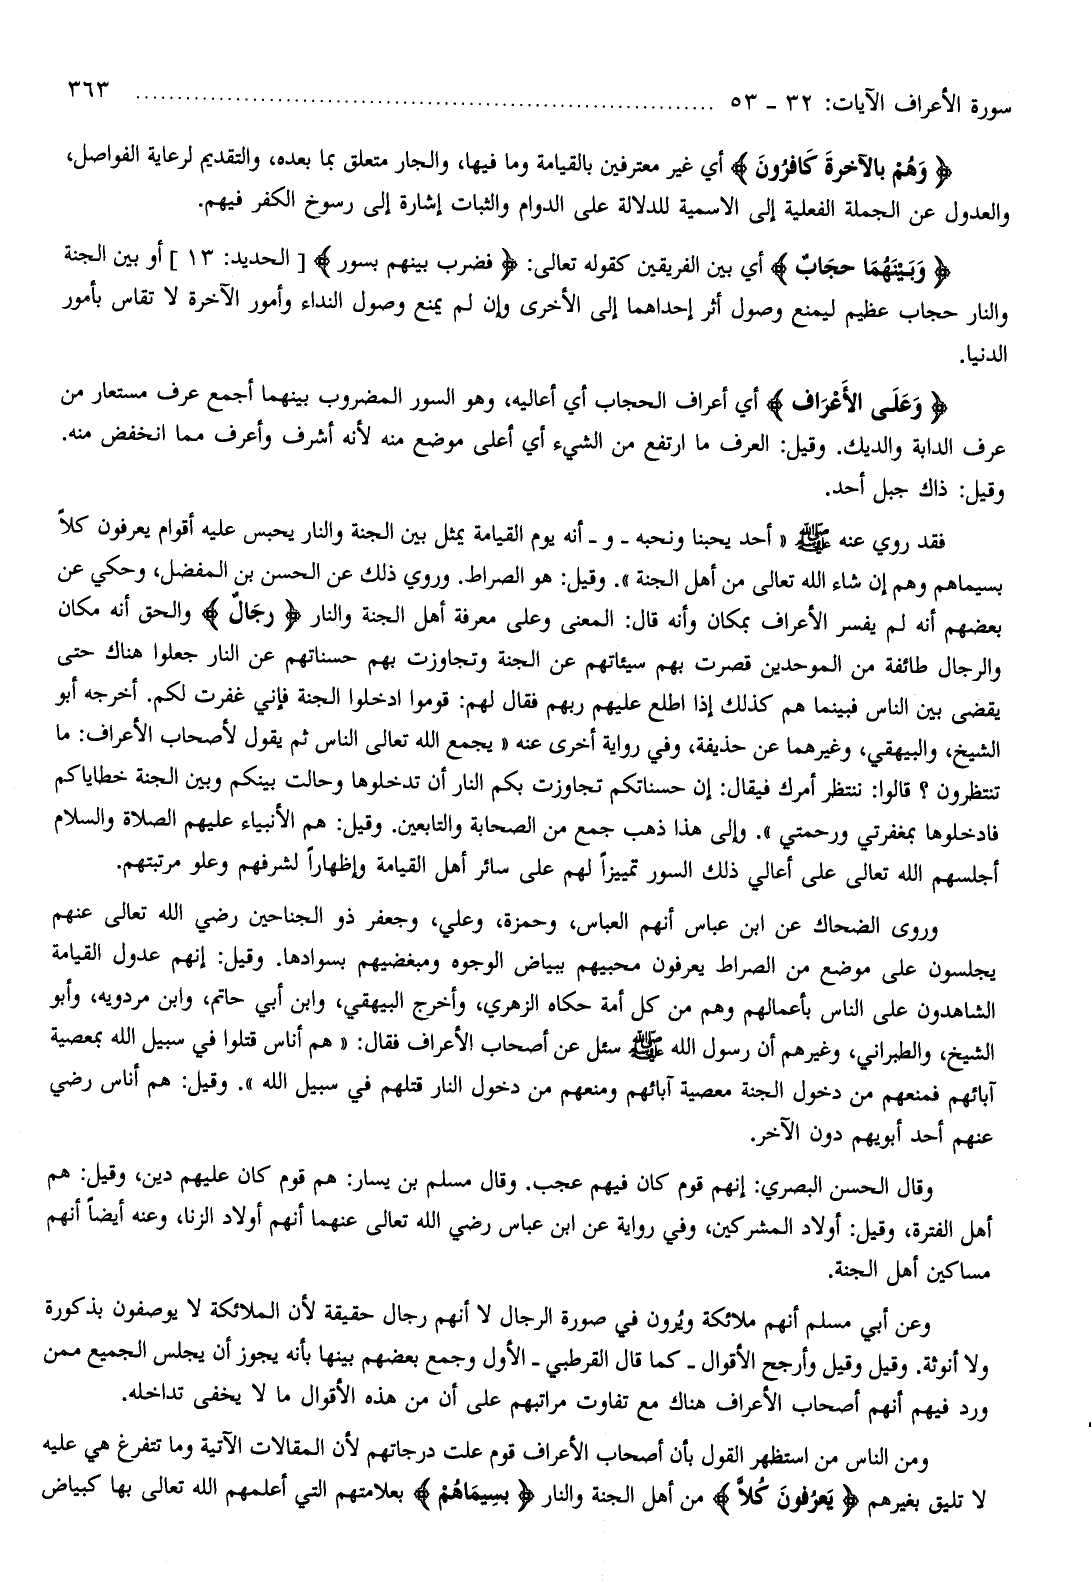 سورة الأعراف الآيات: ٣٢ - ٥٣ ........................................................................ ٣٦٣
﴿ وَهُمْ بالآخرةَ كَافرُونَ ﴾ أي غير معترفين بالقيامة وما فيها، والجار متعلق بما بعده، والتقديم لرعاية الفواصل،
والعدول عن الجملة الفعلية إلى الاسمية للدلالة على الدوام والثبات إشارة إلى رسوخ الكفر فيهم.
﴿ وَبَيْنَهُمَا حجَابٌ ﴾ أي بين الفريقين كقوله تعالى: ﴿ فضرب بينهم بسور ﴾ [ الحديد: ١٣ ] أو بين الجنة
والنار حجاب عظيم ليمنع وصول أثر إحداهما إلى الأخرى وإن لم يمنع وصول النداء وأمور الآخرة لا تقاس بأمور
الدنيا.
﴿ وَعَلَى الأَعْرَاف ﴾ أي أعراف الحجاب أي أعاليه، وهو السور المضروب بينهما أجمع عرف مستعار من
عرف الدابة والديك. وقيل: العرف ما ارتفع من الشيء أي أعلى موضع منه لأنه أشرف وأعرف مما انخفض منه.
وقيل: ذاك جبل أحد.
فقد روي عنه ﷺ « أحد يحبنا ونحبه ـ و ـ أنه يوم القيامة يمثل بين الجنة والنار يحبس عليه أقوام يعرفون كلاً
بسيماهم وهم إن شاء الله تعالى من أهل الجنة ». وقيل: هو الصراط. وروي ذلك عن الحسن بن المفضل، وحكي عن
بعضهم أنه لم يفسر الأعراف بمكان وأنه قال: المعنى وعلى معرفة أهل الجنة والنار ﴿ رجَالٌ ﴾ والحق أنه مكان
والرجال طائفة من الموحدين قصرت بهم سيئاتهم عن الجنة وتجاوزت بهم حسناتهم عن النار جعلوا هناك حتى
يقضى بين الناس فبينما هم كذلك إذا اطلع عليهم ربهم فقال لهم: قوموا ادخلوا الجنة فإني غفرت لكم. أخرجه أبو
الشيخ، والبيهقي، وغيرهما عن حذيفة، وفي رواية أخرى عنه « يجمع الله تعالى الناس ثم يقول لأصحاب الأعراف: ما
تنتظرون ؟ قالوا: ننتظر أمرك فيقال: إن حسناتكم تجاوزت بكم النار أن تدخلوها وحالت بينكم وبين الجنة خطاياكم
فادخلوها بمغفرتي ورحمتي ». وإلى هذا ذهب جمع من الصحابة والتابعين. وقيل: هم الأنبياء عليهم الصلاة والسلام
أجلسهم الله تعالى على أعالي ذلك السور تمييزاً لهم على سائر أهل القيامة وإظهاراً لشرفهم وعلو مرتبتهم.
وروى الضحاك عن ابن عباس أنهم العباس، وحمزة، وعلي، وجعفر ذو الجناحين رضي الله تعالى عنهم
يجلسون على موضع من الصراط يعرفون محبيهم ببياض الوجوه ومبغضيهم بسوادها. وقيل: إنهم عدول القيامة
الشاهدون على الناس بأعمالهم وهم من كل أمة حكاه الزهري، وأخرج البيهقي، وابن أبي حاتم، وابن مردويه، وأبو
الشيخ، والطبراني، وغيرهم أن رسول الله ﷺ سئل عن أصحاب الأعراف فقال: « هم أناس قتلوا في سبيل الله بمعصية
آبائهم فمنعهم من دخول الجنة معصية آبائهم ومنعهم من دخول النار قتلهم في سبيل الله ». وقيل: هم أناس رضي
عنهم أحد أبويهم دون الآخر.
وقال الحسن البصري: إنهم قوم كان فيهم عجب. وقال مسلم بن يسار: هم قوم كان عليهم دين، وقيل: هم
أهل الفترة، وقيل: أولاد المشركين، وفي رواية عن ابن عباس رضي الله تعالى عنهما أنهم أولاد الزنا، وعنه أيضاً أنهم
مساكين أهل الجنة.
وعن أبي مسلم أنهم ملائكة ويُرون في صورة الرجال لا أنهم رجال حقيقة لأن الملائكة لا يوصفون بذكورة
ولا أنوثة. وقيل وقيل وأرجح الأقوال ـ كما قال القرطبي ـ الأول وجمع بعضهم بينها بأنه يجوز أن يجلس الجميع ممن
ورد فيهم أنهم أصحاب الأعراف هناك مع تفاوت مراتبهم على أن من هذه الأقوال ما لا يخفى تداخله.
ومن الناس من استظهر القول بأن أصحاب الأعراف قوم علت درجاتهم لأن المقالات الآتية وما تتفرغ هي عليه
لا تليق بغيرهم ﴿ يَعرُفونَ كُلاًّ ﴾ من أهل الجنة والنار ﴿ بسِيمَاهُمْ ﴾ بعلامتهم التي أعلمهم الله تعالى بها كبياض